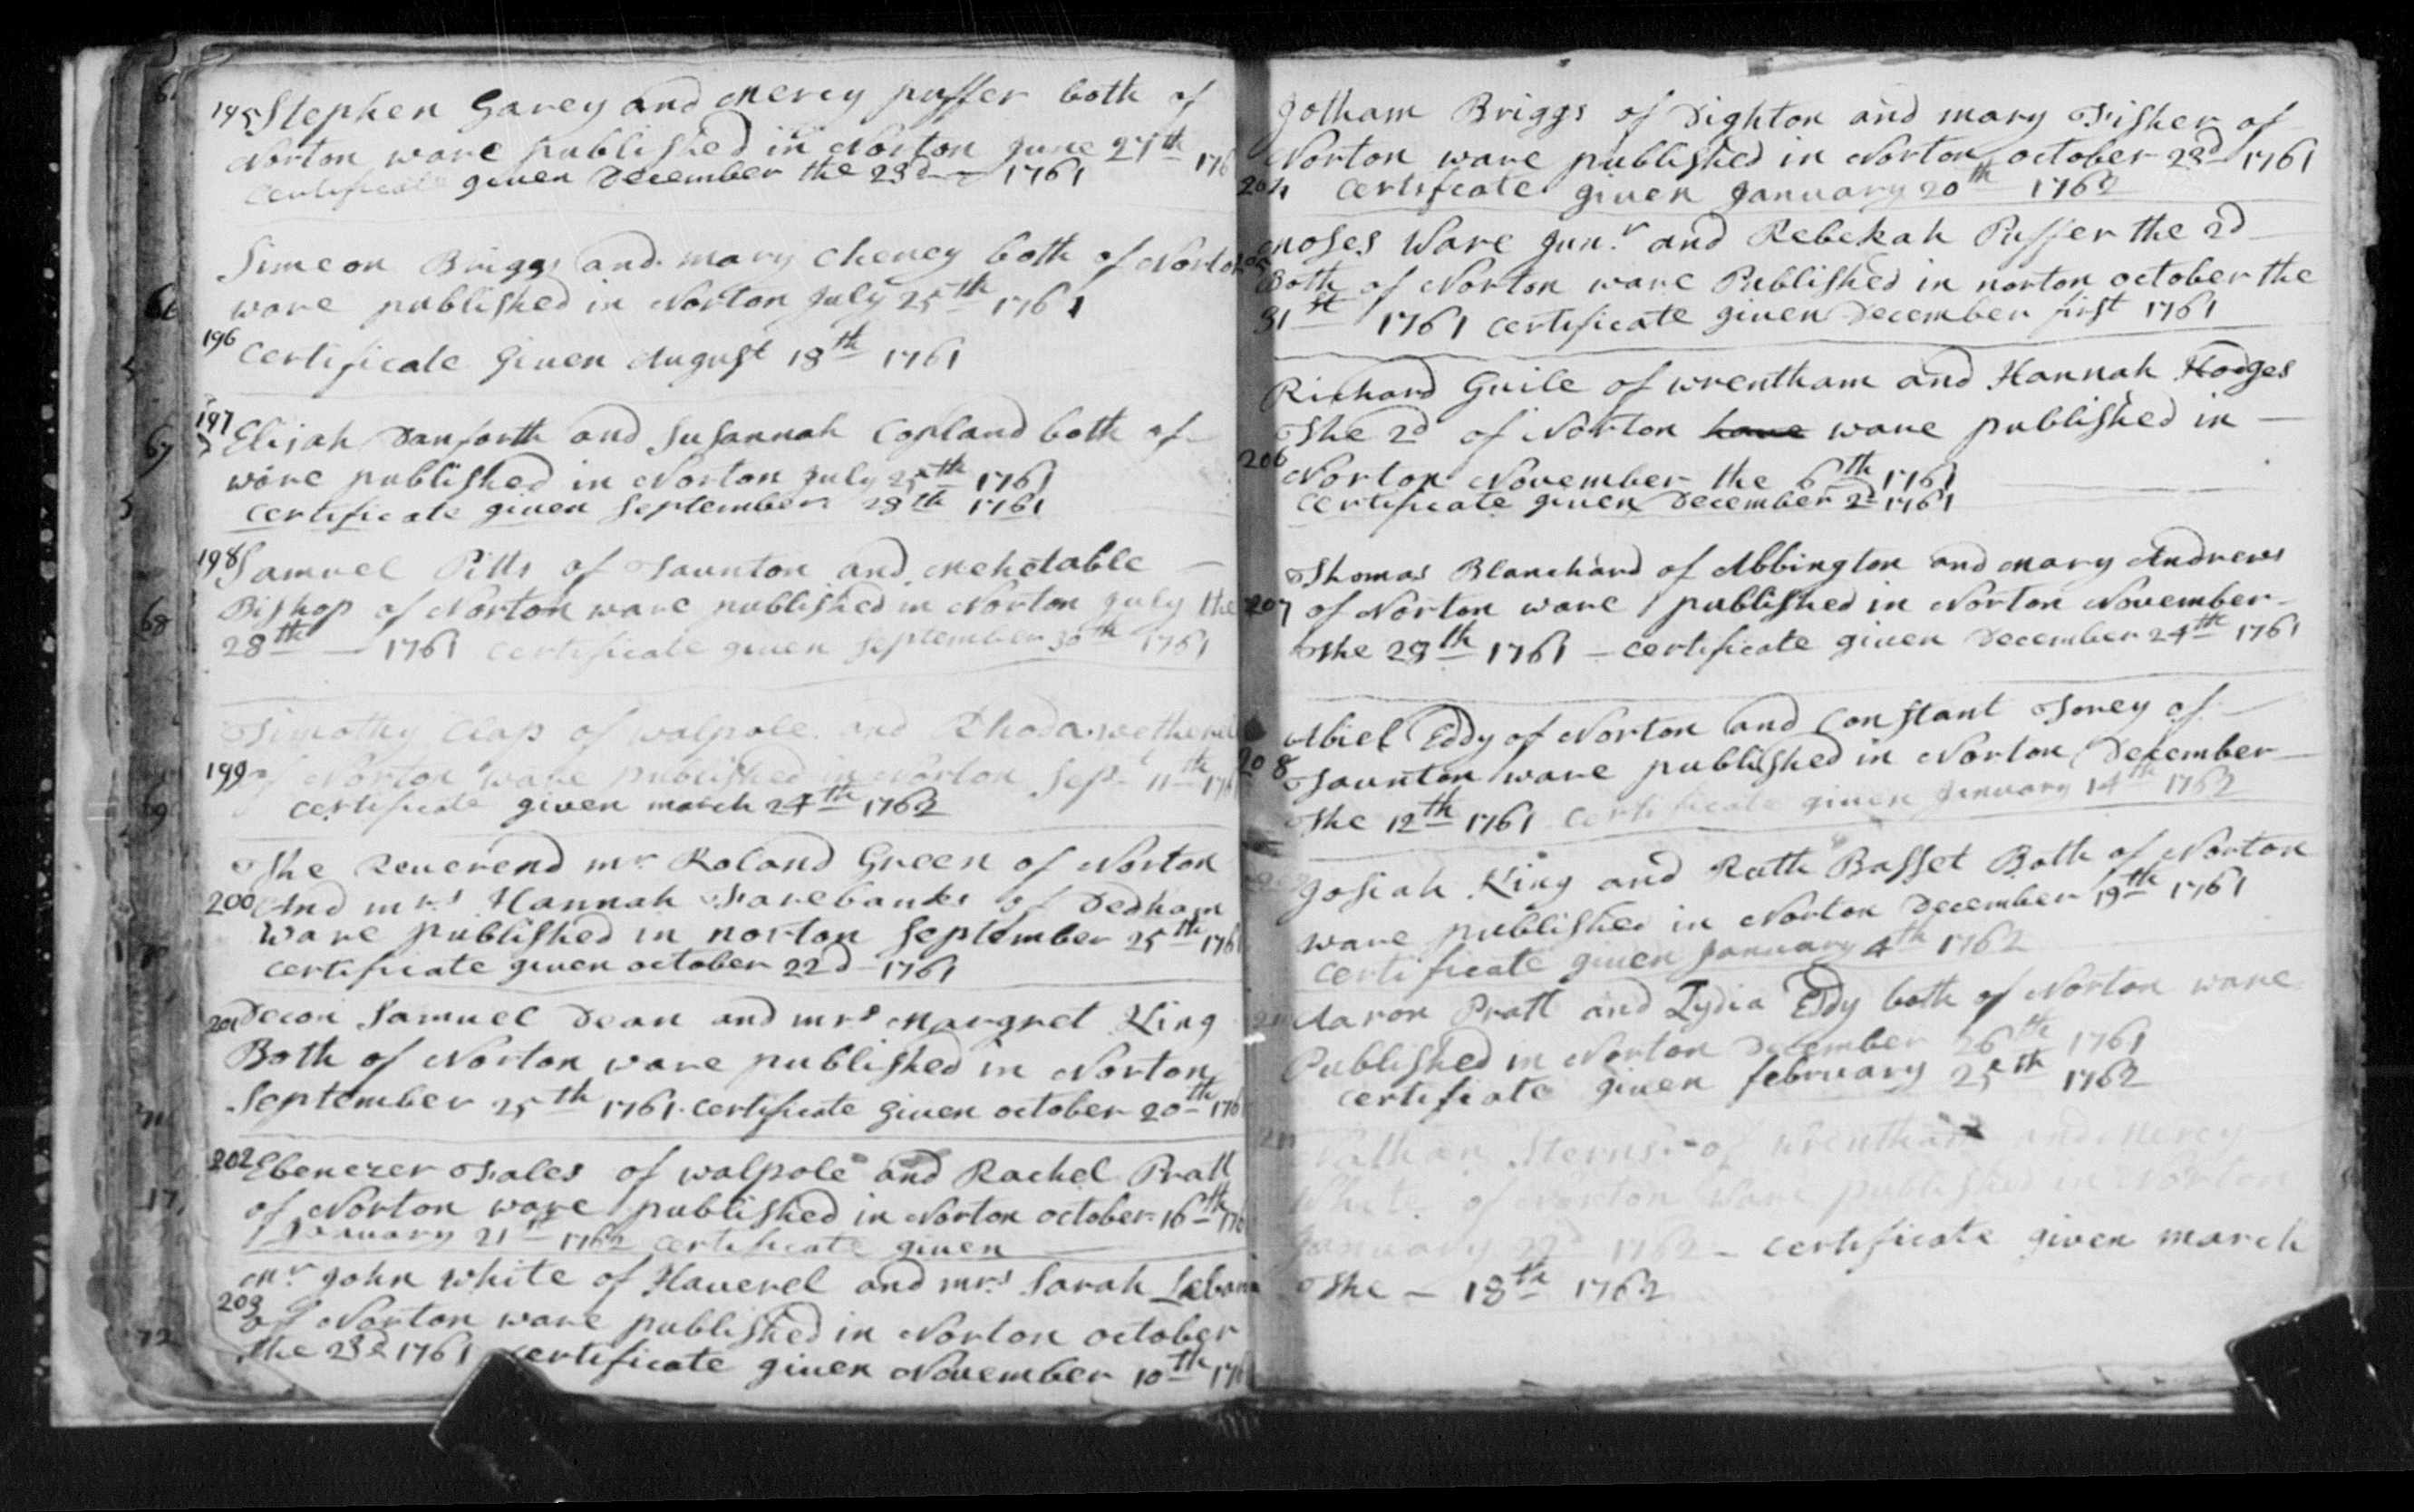 195 Stephen Garey and Mercy puffer both of
Norton ware published in Norton June 27th 176
Certificate given December the 23d — 1761
Simeon Briggs and mary Cheney both of Norton
ware published in Norton July 25th 1761
196 Certificate Given August 18th 1761
197 Elijah Danforth and Susannah Copland both of
ware published in Norton July 25th 1761
Certificate given September 28th 1761
198 Samuel Pitts of Taunton and Mehetable —
Bishop of Norton ware published in Norton July the
28th — 1761 Certificate given September 30th 1761
Timothy Clap of walpole and Rhoda
199 of Norton ware published in Norton Sept 11th 176
Certificate given march 24th 1762
The Reverend mr Roland Green of Norton
200 And mrs Hannah Farebanks of Dedham
Ware published in norton September 25th 176
Certificate given october 22d — 1761
201 Decon Samuel Dean and mrs Margret King
Both of Norton ware published in Norton
September 25th 1761. Certificate given october 20th 176
202 Ebenezer Fales of walpole and Rachel Pratt
of Norton ware published in Norton october 16th 176
January 21st 1762 Certificate given
Mr John White of Haverel and mrs Sarah
203 of Norton ware published in Norton october
the 23d 1761 Certificate given November 10th 176
Jotham Briggs of Dighton and mary Fisher of
Norton ware published in Norton october 23d 1761
204 Certificate given January 20th 1762
Moses Ware Junr and Rebekah Puffer the 2d
Both of Norton ware Published in norton october the
31st 1761 Certificate given December first 1761
Richard Guile of wrentham and Hannah Hodges
The 2d of Norton have ware published in —
206 Norton November the 6th 1761
Certificate given December 2d 1761
Thomas Blanchard of Abbington and Mary Andrews
207 of Norton ware published in Norton November
The 28th 1761 — Certificate given December 24th 1761
Abiel Eddy of Norton and Constant Torey of
208 Taunton ware published in Norton December
The 12th 1761 Certificate given January 14th 1762
Josiah King and Ruth Basset Both of Norton
ware published in Norton December 19th 1761
Certificate given January 4th 1762
Aaron Pratt and Lydia Eddy both of Norton ware
Published in Norton December 26th 1761
Certificate given february 25th 1762
Nathan Sterns of Wrentham and Mercy
White of Norton Ware published in Norton
January 22d 1762 — Certificate given march
The — 18th 1762